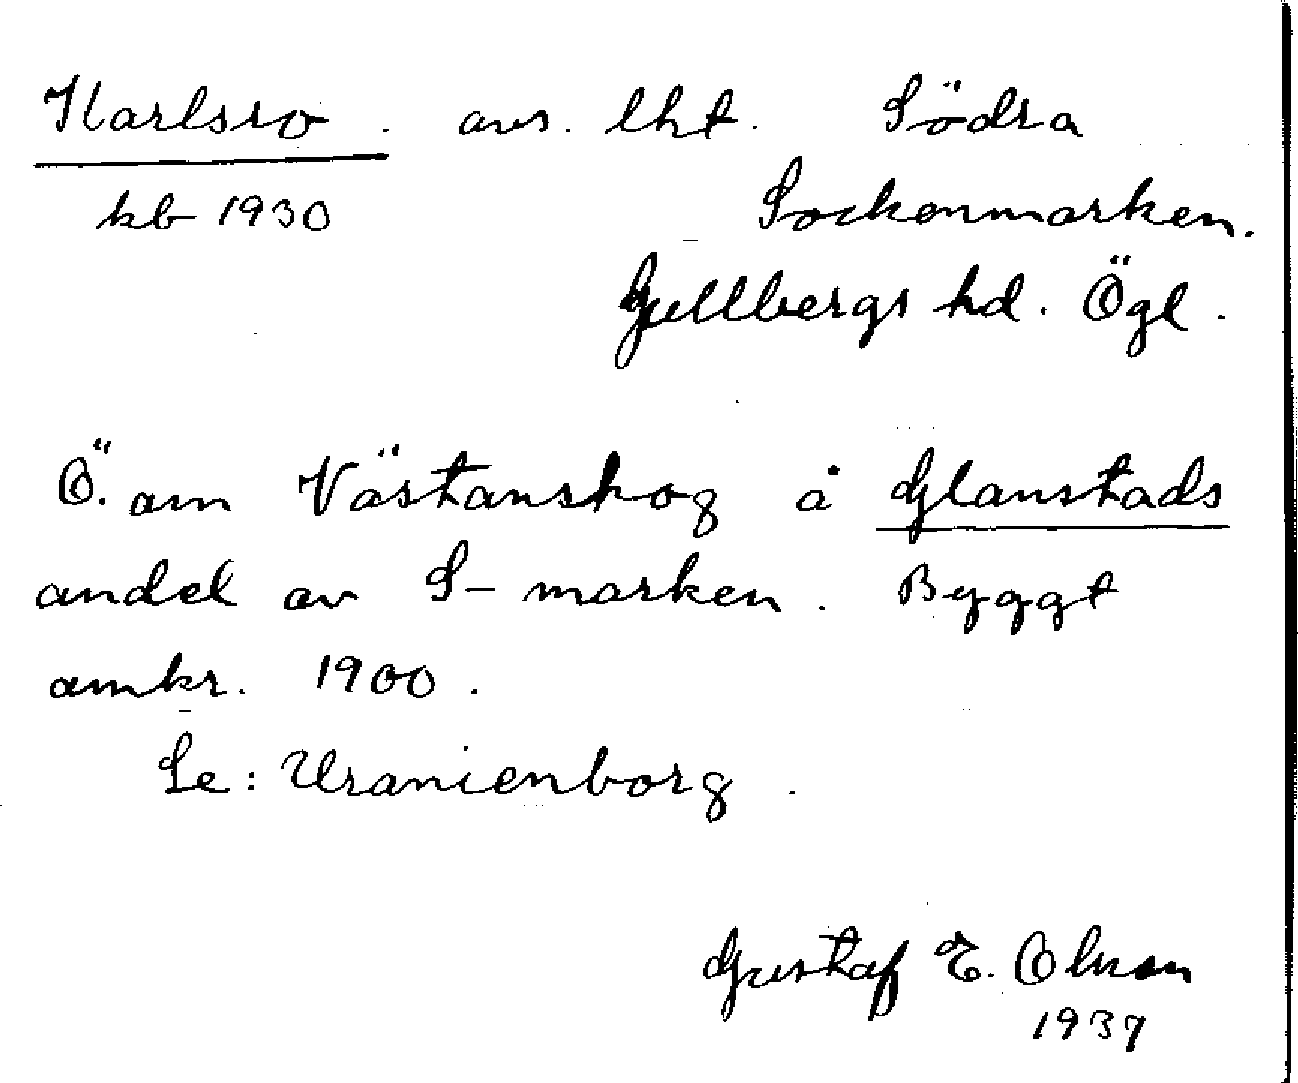 Karlsro. avs. lht. Södra
kb 1930 Sockenmarken.
Gullbergs hd. Ögl.
Ö. om Västanskog å Glanstads
andel av S-marken. Byggt
omkr. 1900.
Se: Uranienborg.
Gustaf E. Olsson
1937